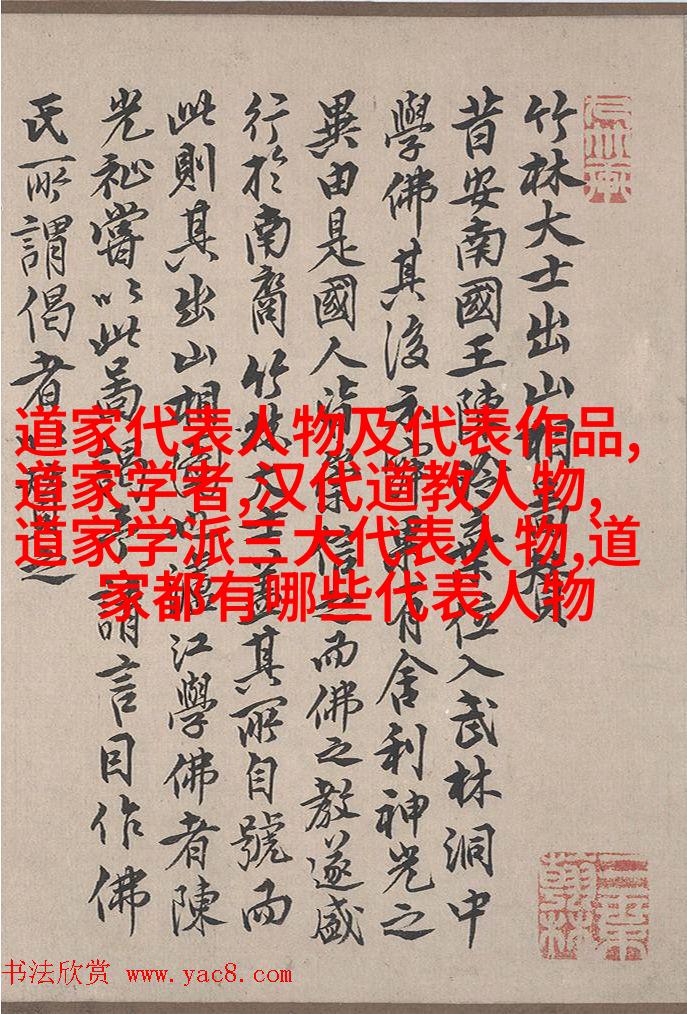 竹林大士出山相
昔安南國王陳棄位入武林洞中
學佛其後示寂果有舍利神光之
異由是國人皆崇信之而佛之教遂盛
行於南裔竹林大士蓋其所自號而
此則其出山相江學佛者陳
光祉嘗以此謂言目作佛
氏所謂偈者之
道家代表人物及代表作品,
道家学者,汉代道教人物,
道家学派三大代表人物,道
家都有哪些代表人物
书法欣赏 www.yac8.com